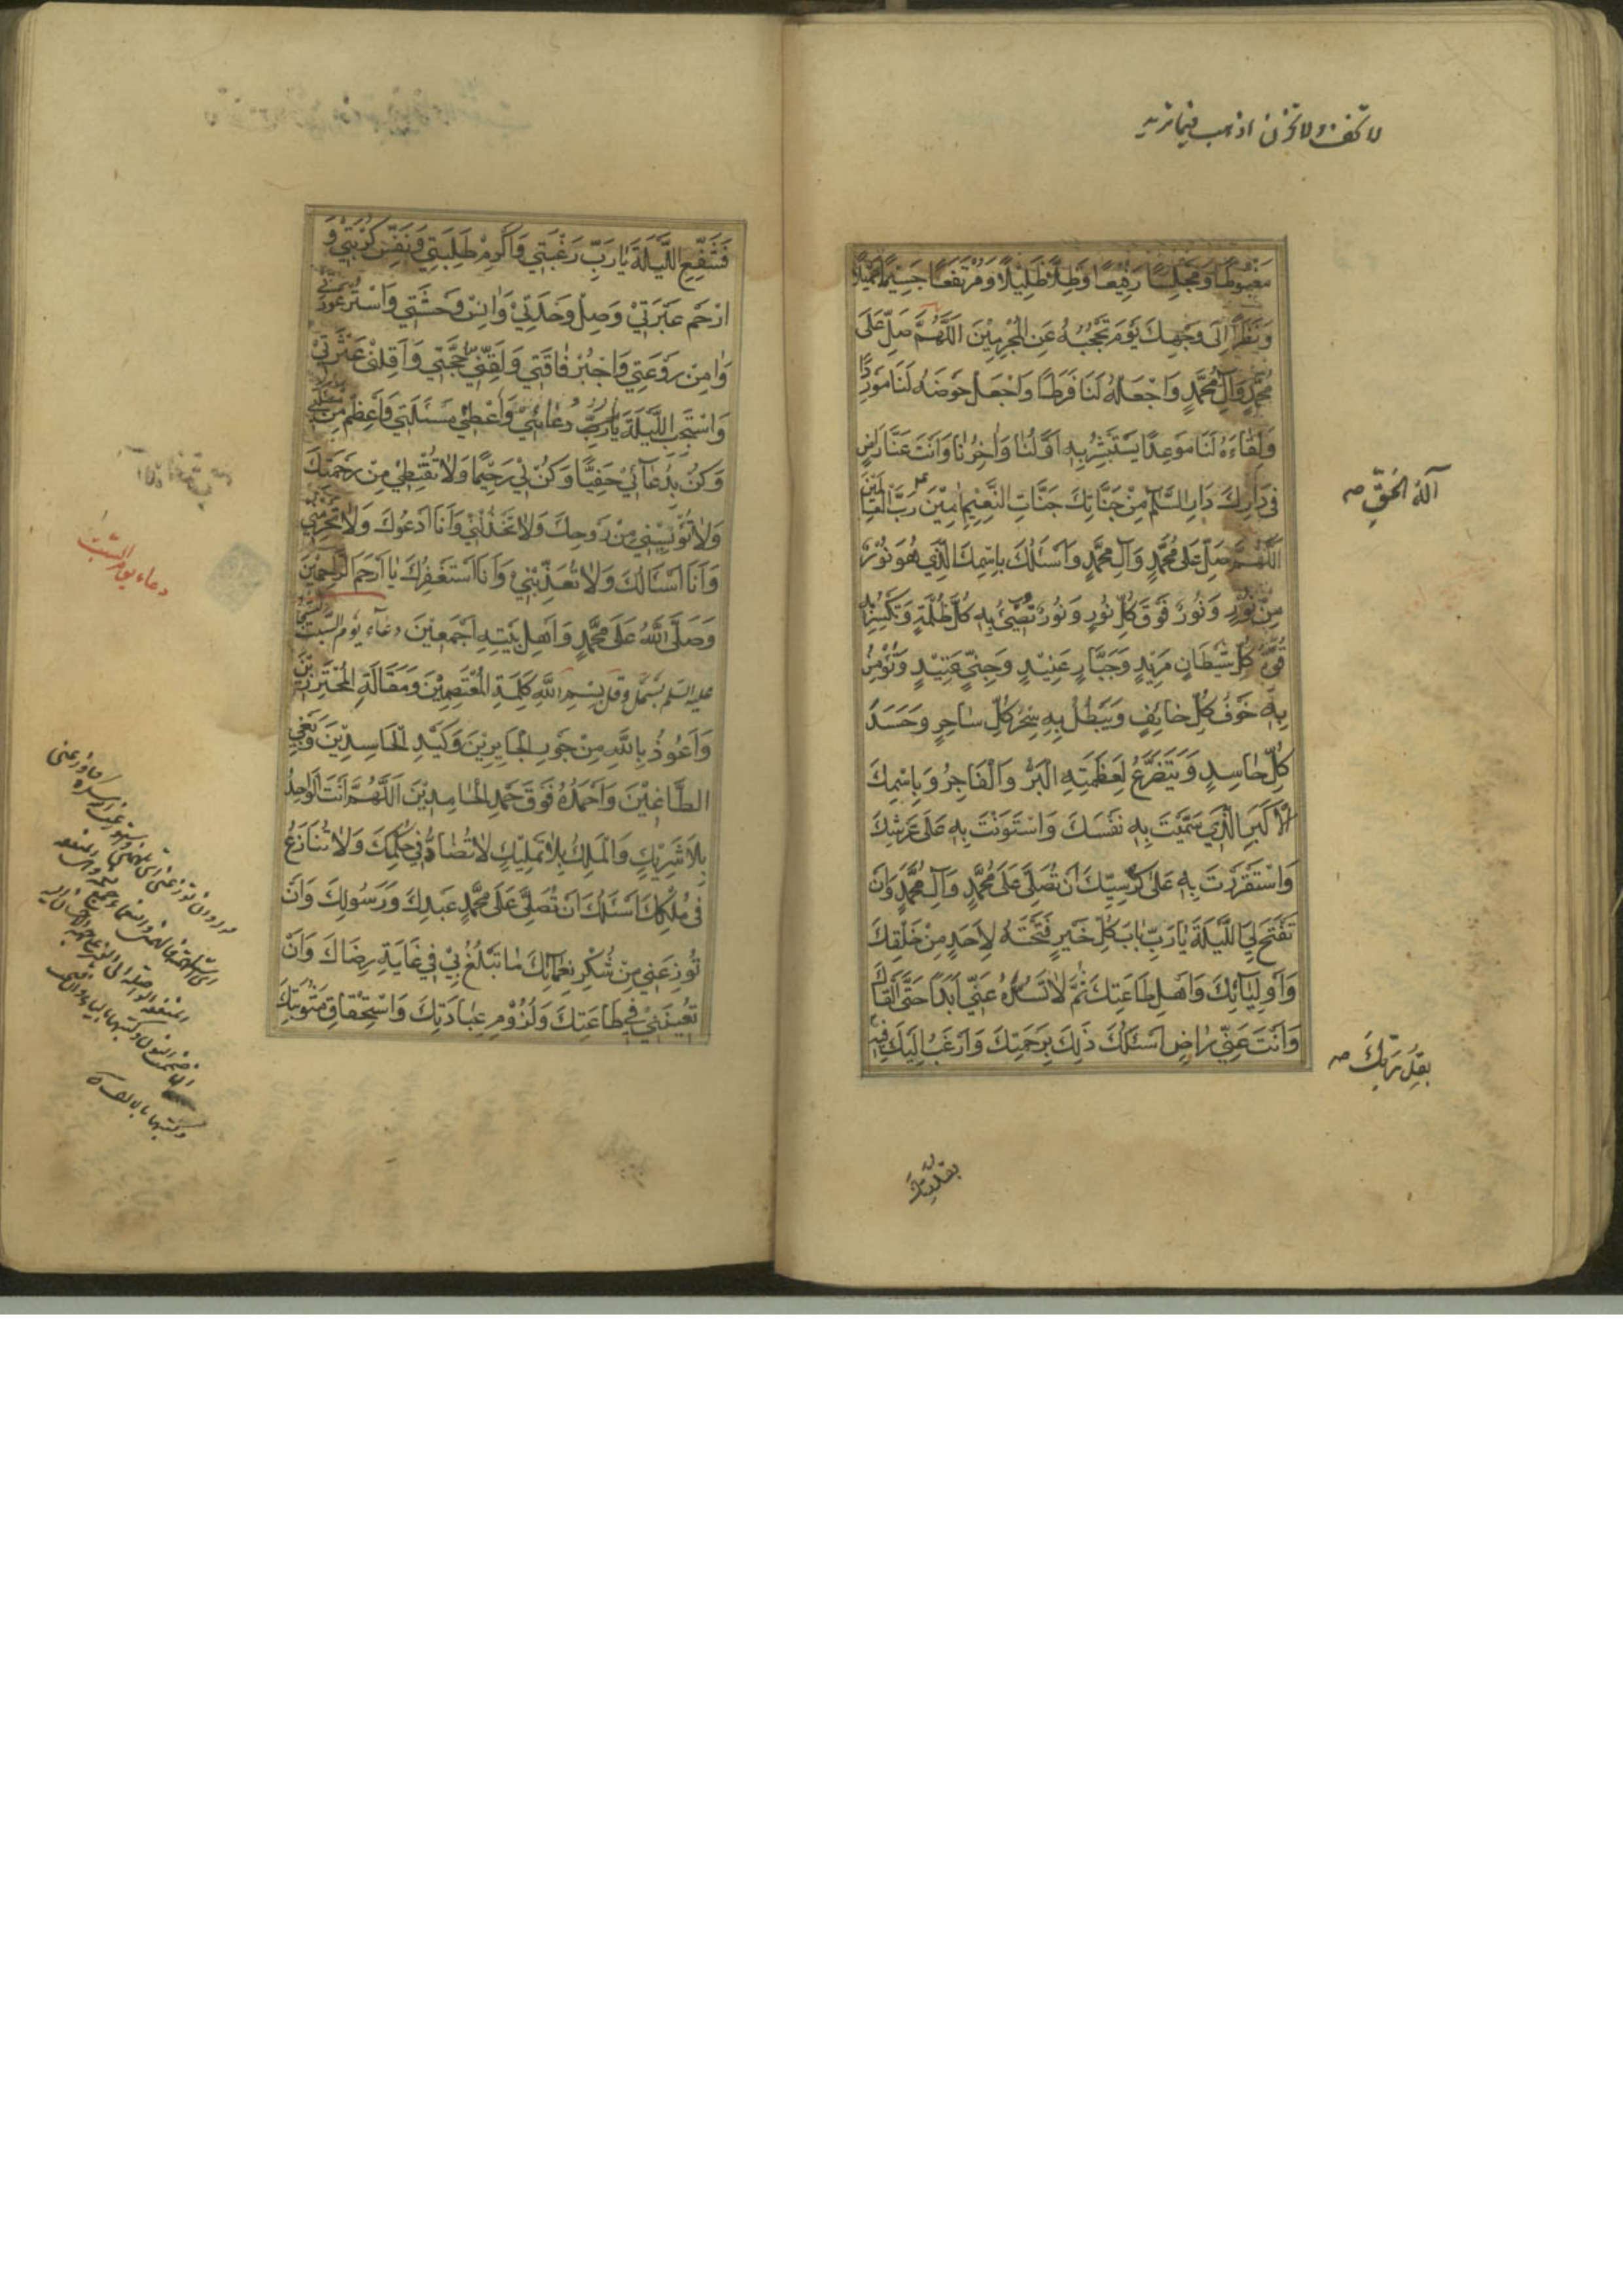 لا تخف ولا تحزن اذهب فيما تريد
مَغْبُوطًا وَمَجْلِسًا رَفِيْعًا وَظِلًّا ظَلِيْلًا وَمُرْتَفَعًا جَسِيْمًا جَمِيْلًا
وَنَظَرًا اِلٰى وَجْهِكَ يَوْمَ تَحْجُبُهُ عَنِ الْمُجْرِمِيْنَ اَللّٰهُمَّ صَلِّ عَلٰى
مُحَمَّدٍ وَآلِ مُحَمَّدٍ وَاجْعَلْهُ لَنَا فَرَطًا وَاجْعَلْ حَوْضَهُ لَنَا مَوْرِدًا
وَلِقَاءَهُ لَنَا مَوْعِدًا يَسْتَبْشِرُ بِهِ اَوَّلُنَا وَاٰخِرُنَا وَاَنْتَ عَنَّا رَاضٍ
فِى دَارِكَ دَارِ السَّلٰمِ مِنْ جَنَّاتِكَ جَنَّاتِ النَّعِيْمِ اٰمِيْنَ رَبَّ الْعٰالَمِيْنَ
آلِهِ الْحَقِّ صه
اَللّٰهُمَّ صَلِّ عَلٰى مُحَمَّدٍ وَآلِ مُحَمَّدٍ وَاَسْئَلُكَ بِاسْمِكَ الَّذِي هُوَ نُوْرٌ
مِنْ نُوْرٍ وَنُوْرٌ فَوْقَ كُلِّ نُوْرٍ وَنُوْرٌ تُضِيْءُ بِهِ كُلَّ ظُلْمَةٍ وَتَكْسِرُ بِهِ
قُوَّةَ كُلِّ شَيْطَانٍ مَرِيْدٍ وَجَبَّارٍ عَنِيْدٍ وَجِنِّيٍّ عَتِيْدٍ وَتُؤْمِنُ
بِهِ خَوْفَ كُلِّ خَائِفٍ وَيَبْطُلُ بِهِ سِحْرُ كُلِّ سٰاحِرٍ وَحَسَدُ
كُلِّ حٰاسِدٍ وَيَتَضَرَّعُ لِعَظَمَتِهِ الْبَرُّ وَالْفَاجِرُ وَبِاسْمِكَ
الْاَكْبَرِ الَّذِي سَمَّيْتَ بِهِ نَفْسَكَ وَاسْتَوَيْتَ بِهِ عَلٰى عَرْشِكَ
وَاسْتَقْرَرْتَ بِهِ عَلٰى كُرْسِيِّكَ اَنْ تُصَلِّيَ عَلٰى مُحَمَّدٍ وَآلِ مُحَمَّدٍ وَاَنْ
تَفْتَحَ لِيَ اللَّيْلَةَ يٰا رَبِّ بٰابَ كُلِّ خَيْرٍ فَتَحْتَهُ لِاَحَدٍ مِنْ خَلْقِكَ
وَاَوْلِيٰائِكَ وَاَهْلِ طٰاعَتِكَ ثُمَّ لٰا تَسُدَّهُ عَنِّي اَبَدًا حَتّٰى اَلْقٰاكَ
وَاَنْتَ عَنِّي رٰاضٍ اَسْئَلُكَ ذٰلِكَ بِرَحْمَتِكَ وَاَرْغَبُ اِلَيْكَ فِيْهِ
صه
فَشَفِّعِ اللَّيْلَةَ يٰا رَبِّ رَغْبَتِي وَاَكْرِمْ طَلِبَتِي وَنَفِّسْ كُرْبَتِي وَ
ارْحَمْ عَبْرَتِي وَصِلْ وَحْدَتِي وَاٰنِسْ وَحْشَتِي وَاسْتُرْ عَوْرَتِي
وَاٰمِنْ رَوْعَتِي وَاجْبُرْ فٰاقَتِي وَلَقِّنِّي حُجَّتِي وَاَقِلْنِي عَثْرَتِي
وَاسْتَجِبِ اللَّيْلَةَ يٰا رَبِّ دُعٰائِي وَاَعْطِنِي مَسْئَلَتِي وَاَعْظَمَ مِنْ مَسْئَلَتِي
وَكُنْ بِدُعٰائِي حَفِيًّا وَكُنْ بِي رَحِيْمًا وَلٰا تُقَنِّطْنِي مِنْ رَحْمَتِكَ
وَلٰا تُؤْيِسْنِي مِنْ رَوْحِكَ وَلٰا تَخْذُلْنِي وَاَنَا اَدْعُوْكَ وَلٰا تَحْرِمْنِي
وَاَنَا اَسْئَالُكَ وَلٰا تُعَذِّبْنِي وَاَنَا اَسْتَغْفِرُكَ يٰا اَرْحَمَ الرّٰاحِمِيْنَ
دعاء يوم السبت
وَصَلَّى اللّٰهُ عَلٰى مُحَمَّدٍ وَاَهْلِ بَيْتِهِ اَجْمَعِيْنَ دعآء يوم السبت
عليه السلم بِسْمِ اللّٰهِ كَلِمَةِ الْمُعْتَصِمِيْنَ وَمَقَالَةِ الْمُتَحَرِّزِيْنَ
وَاَعُوْذُ بِاللّٰهِ مِنْ جَوْرِ الْجَايِرِيْنَ وَكَيْدِ الْحَاسِدِيْنَ وَبَغْيِ
الطَّاغِيْنَ وَاَحْمَدُهُ فَوْقَ حَمْدِ الْحٰامِدِيْنَ اَللّٰهُمَّ اَنْتَ الْوَاحِدُ
بِلَا شَرِيْكٍ وَالْمَلِكُ بِلَا تَمْلِيْكٍ لَا تُضَادُّ فِي حُكْمِكَ وَلٰا تُنَازَعُ
فِى مُلْكِكَ اَسْئَلُكَ اَنْ تُصَلِّيَ عَلٰى مُحَمَّدٍ عَبْدِكَ وَرَسُوْلِكَ وَاَنْ
تُوْزِعَنِي مِنْ شُكْرِ نَعْمَائِكَ مٰا تَبْلُغُ بِي فِي غَايَةِ رِضَاكَ وَاَنْ
تُعِيْنَنِي فِي طَاعَتِكَ وَلُزُوْمِ عِبَادَتِكَ وَاسْتِحْقَاقِ مَثُوْبَتِكَ